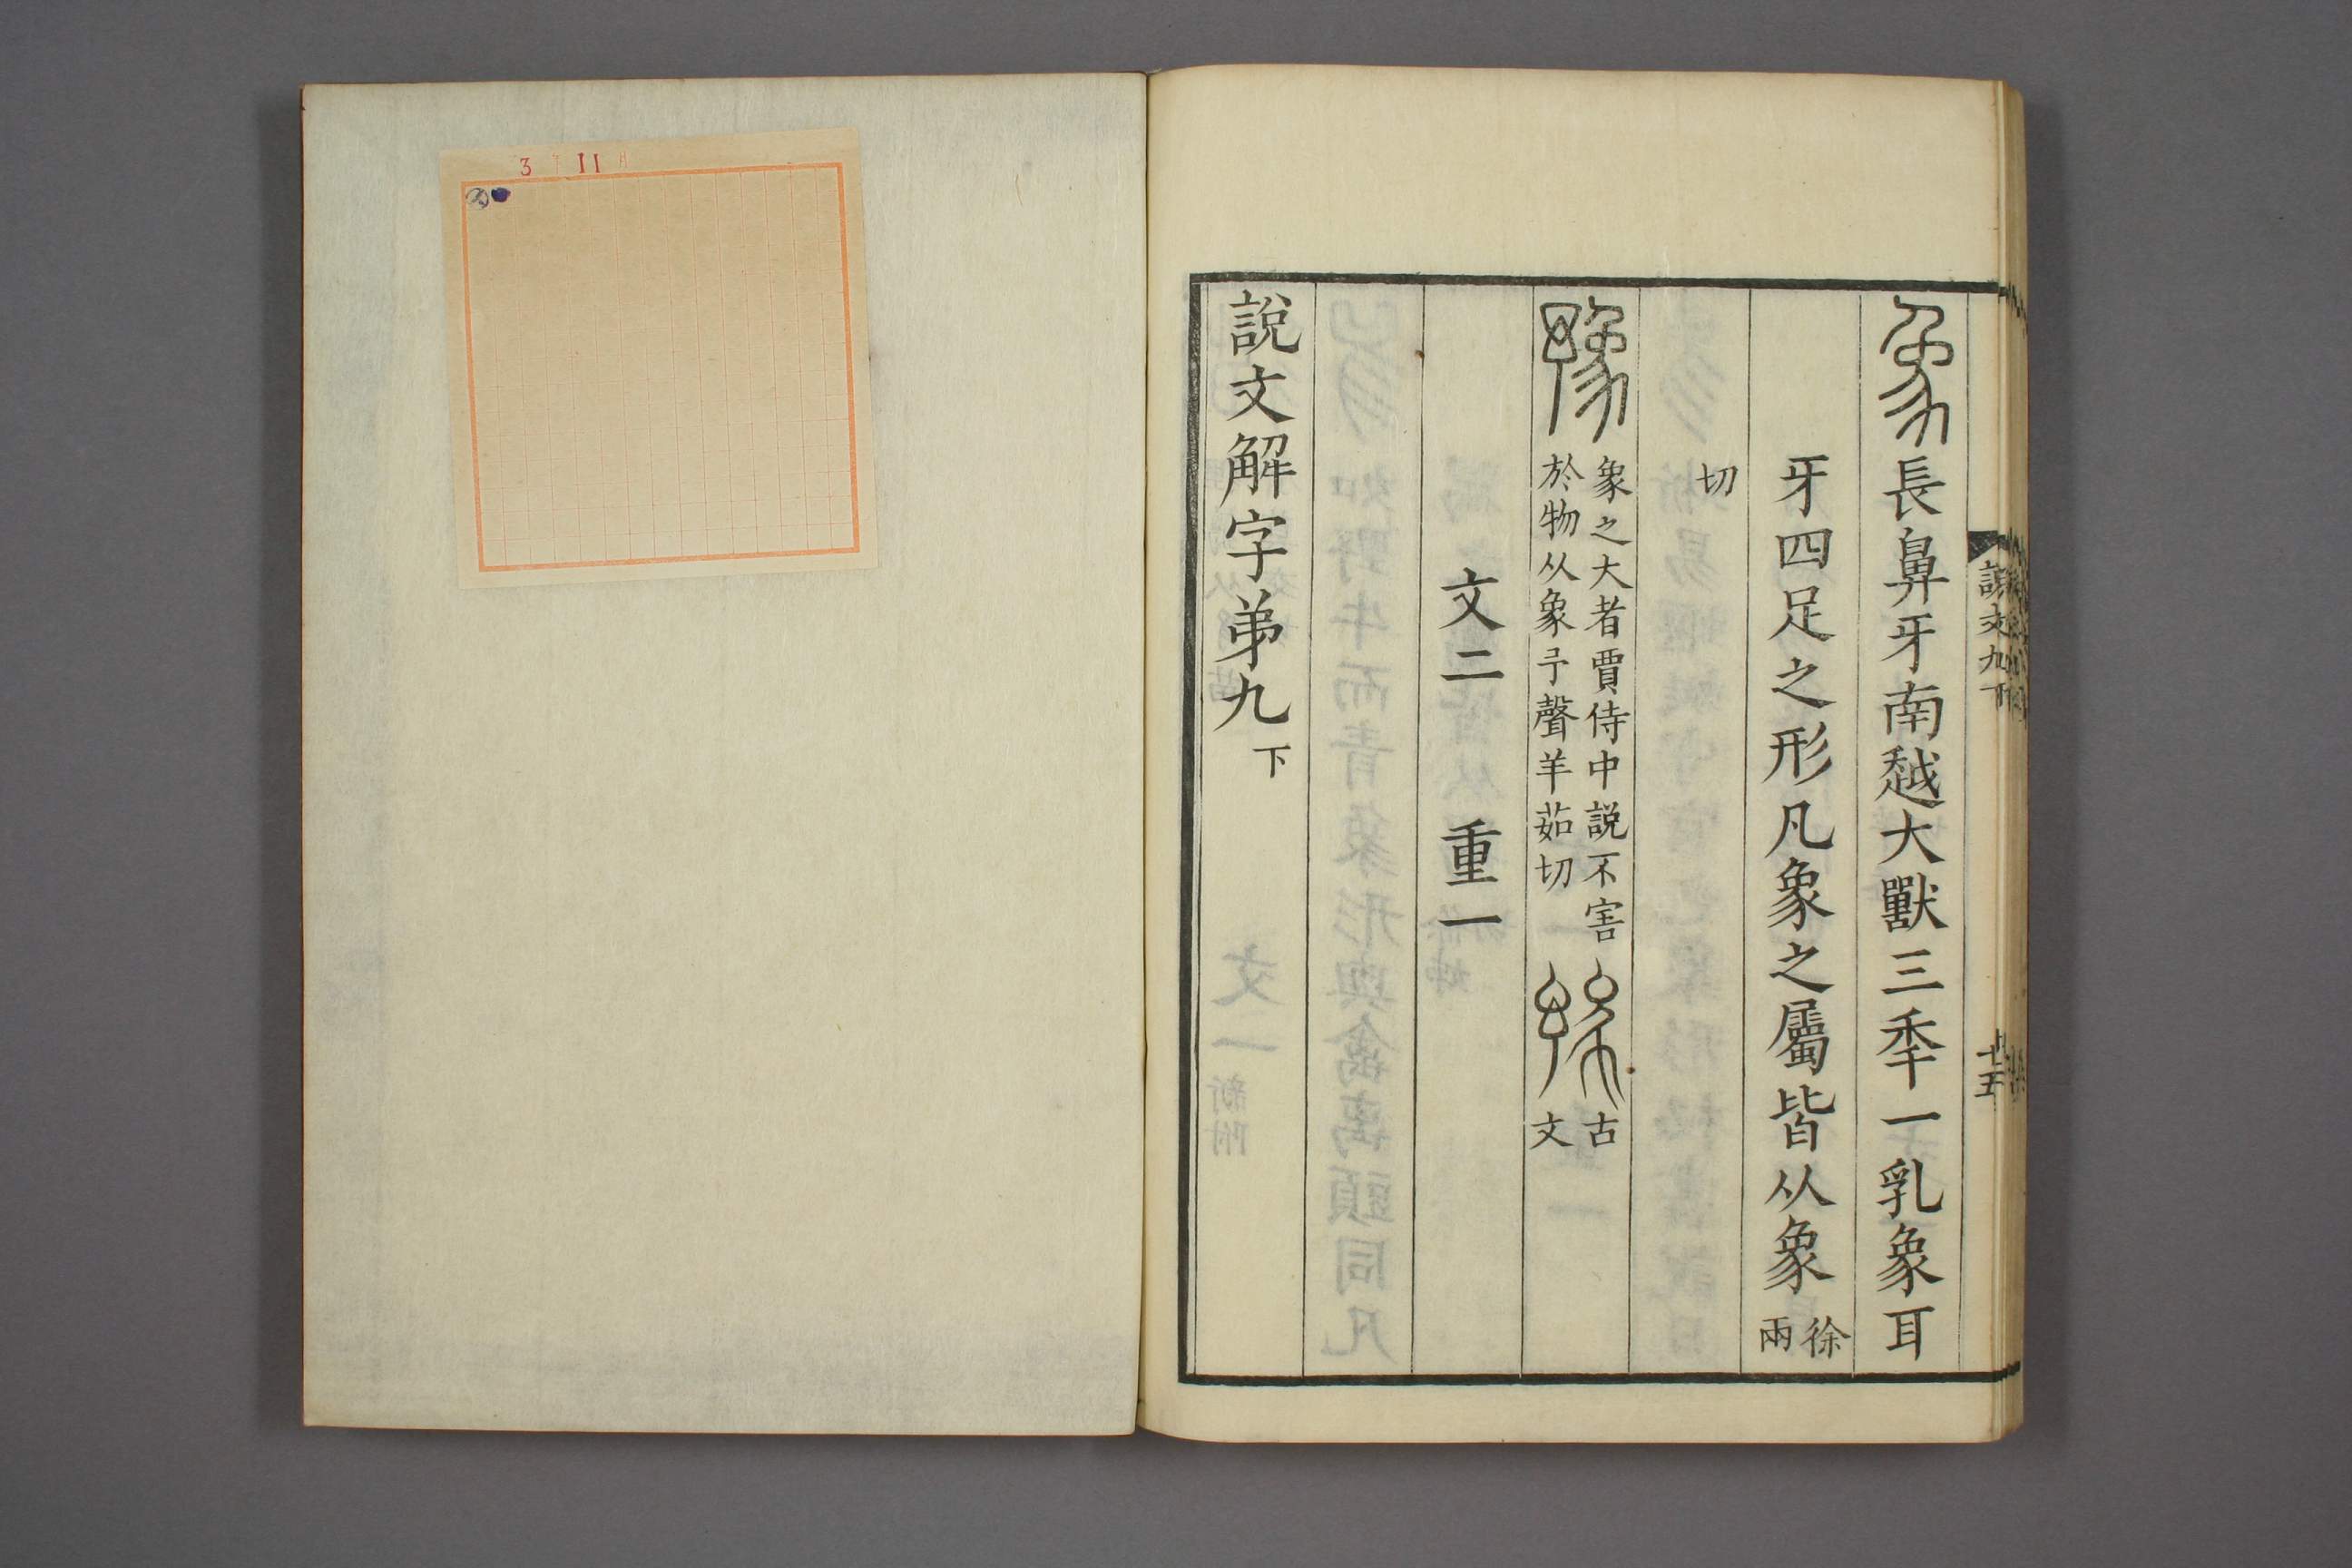 象長鼻牙南越大獸三秊一乳象耳
牙四足之形凡象之屬皆从象徐兩
切
豫象之大者賈侍中説不害
於物从象予聲羊茹切
古文
文二 重一
說文解字弟九下
説文九下
十五
3 11